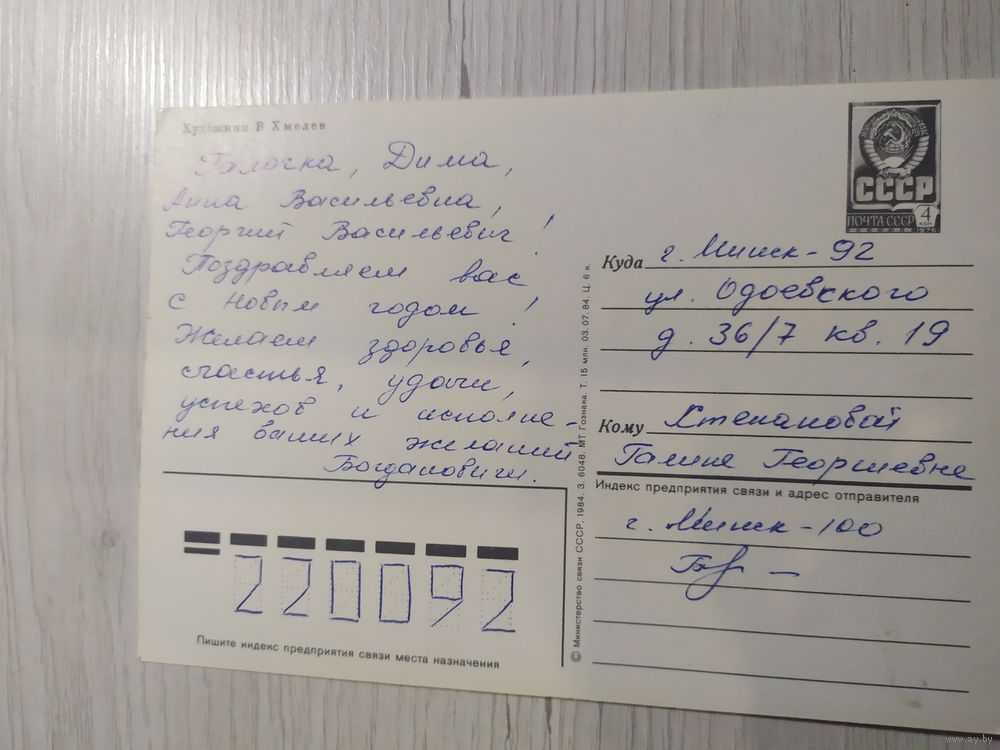 Художник В. Хмелев
Галочка, Дима,
Анна Васильевна,
Георгий Васильевич!
Поздравляем вас
с Новым годом!
Желаем здоровья,
счастья, удачи,
успехов и исполне-
ния ваших желаний
Богдановичи.
СССР
ПОЧТА СССР
4
КОП
1976
Куда г. Минск-92
ул. Одоевского
д. 36/7 кв. 19
Кому Степановой
Галине Георгиевне
Индекс предприятия связи и адрес отправителя
г. Минск-100
© Министерство связи СССР, 1984. З. 6048. МТ Гознака. Т. 15 млн. 03. 07. 84. Ц. 6 к.
220092
Пишите индекс предприятия связи места назначения
www.ay.by